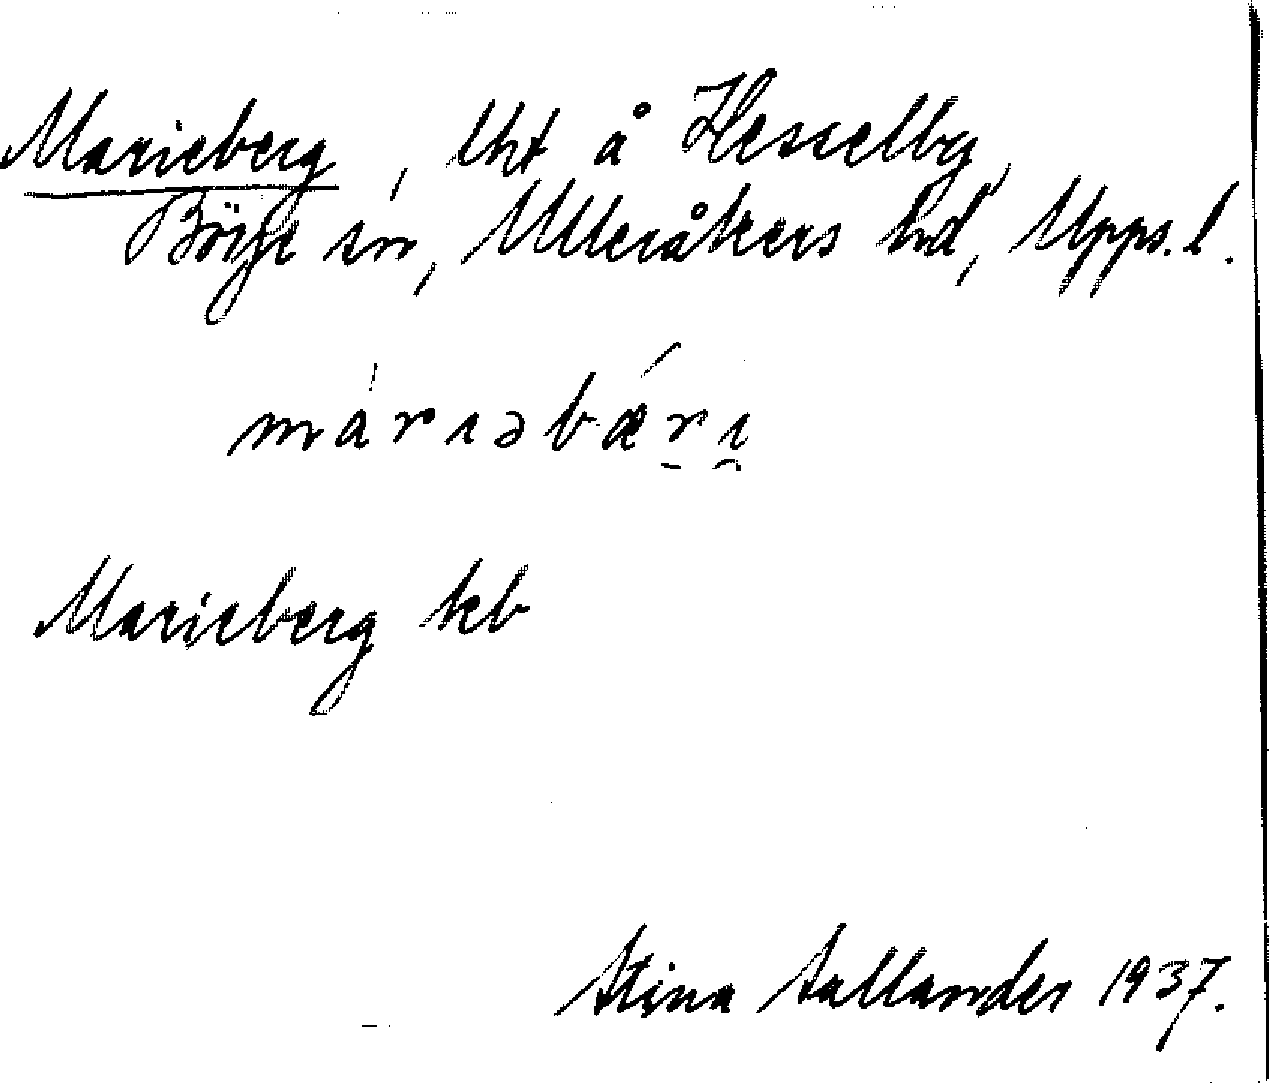 Marieberg, lht å Hesselby,
Börje sn, Ulleråkers hd, Upps. l.
máriəbæ̀rị
Marieberg kb
Stina Sallander 1937.